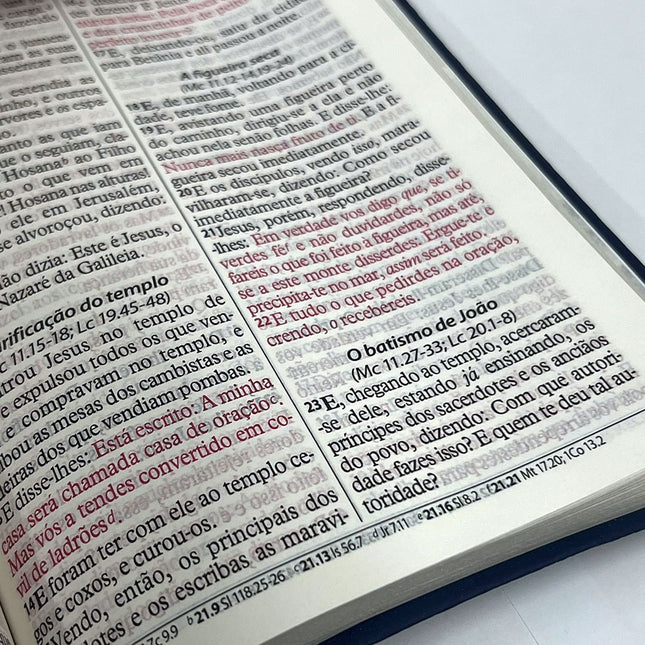 estendia as
ores e os espa-
nto as que iam
e o seguiam, cla-
Hosanaᵇ ao Filho
o que vem em
! Hosana nas alturas!
ele em Jerusalém,
se alvoroçou, dizendo:
dizia: Este é Jesus, o
Nazaré da Galileia.
rificação do templo
c 11.15-18; Lc 19.45-48)
trou Jesus no templo de
e expulsou todos os que ven-
compravam no templo, e
bou as mesas dos cambistas e as
eiras dos que vendiam pombas.
E disse-lhes: Está escrito: A minha
casa será chamada casa de oraçãoᶜ.
Mas vós a tendes convertido em co-
vil de ladrõesᵈ.
14 E foram ter com ele ao templo ce-
gos e coxos, e curou-os.
Vendo, então, os principais dos
dotes e os escribas as maravi-
saiu da cidade
Betânia e ali passou a noite.
A figueira seca
(Mc 11.12-14,19-24)
18 E, de manhã, voltando para a ci-
dade, teve fome.
19 E, avistando uma figueira perto
do caminho, dirigiu-se a ela e não
achou nela senão folhas. E disse-lhe:
Nunca mais nasça fruto de ti. E a fi-
gueira secou imediatamente.
20 E os discípulos, vendo isso, mara-
vilharam-se, dizendo: Como secou
imediatamente a figueira?
21 Jesus, porém, respondendo, disse-
-lhes: Em verdade vos digo que, se ti-
verdes féᶠ e não duvidardes, não só
fareis o que foi feito à figueira, mas até,
se a este monte disserdes: Ergue-te e
precipita-te no mar, assim será feito.
22 E tudo o que pedirdes na oração,
crendo, o recebereis.
O batismo de João
(Mc 11.27-33; Lc 20.1-8)
23 E, chegando ao templo, acercaram-
-se dele, estando já ensinando, os
príncipes dos sacerdotes e os anciãos
do povo, dizendo: Com que autori-
dade fazes isso? E quem te deu tal au-
toridade?
7c 9.9 ᵇ 21.9 Sl 118.25-26 ᶜ 21.13 Is 56.7 ᵈ Jr 7.11 ᵉ 21.16 Sl 8.2 ᶠ 21.21 Mt 17.20; 1Co 13.2